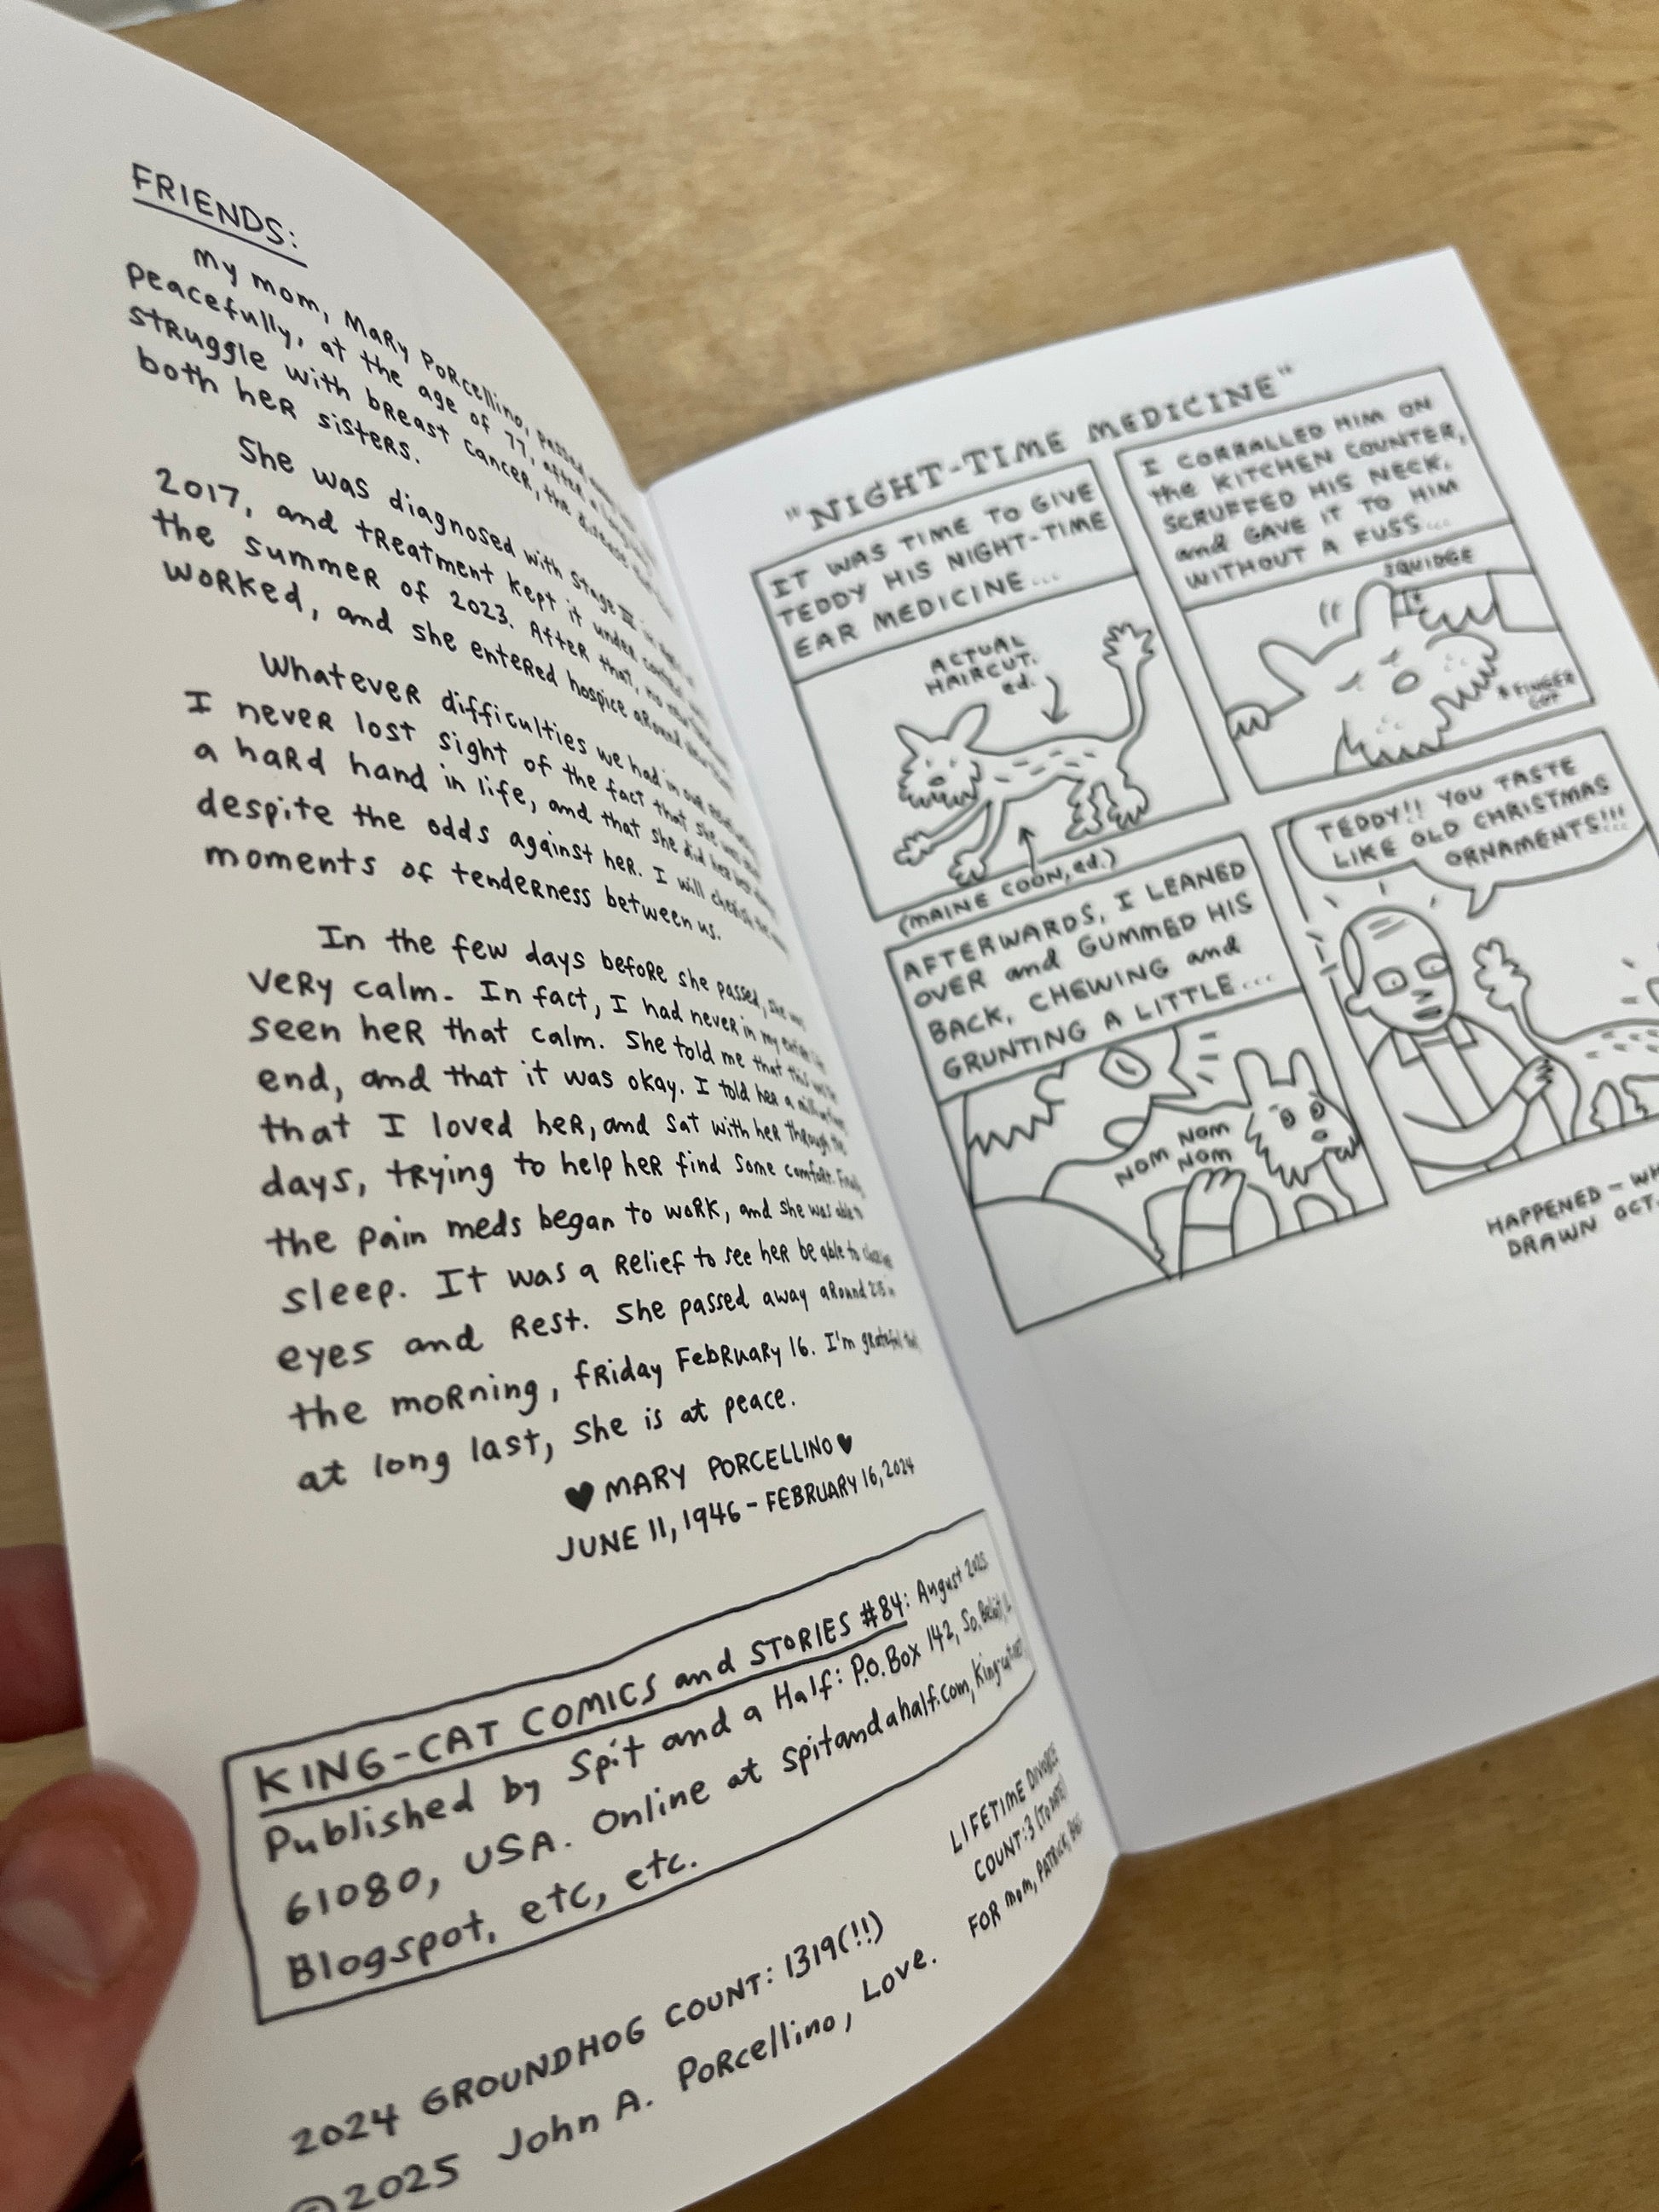 FRIENDS:
My mom, Mary Porcellino, passed
peacefully, at the age of 77, after a long
struggle with breast cancer, the disease
both her sisters.
She was diagnosed with Stage
2017, and treatment kept it under control
the summer of 2023. After that,
worked, and she entered hospice around
Whatever difficulties we had in our
I never lost sight of the fact that she was
a hard hand in life, and that she did her best
despite the odds against her. I will cherish the
moments of tenderness between us.
In the few days before she passed, she was
very calm. In fact, I had never in my entire life
seen her that calm. She told me that this was the
end, and that it was okay. I told her a million times
that I loved her, and sat with her through the
days, trying to help her find some comfort. Finally
the pain meds began to work, and she was able to
sleep. It was a relief to see her be able to close
eyes and rest. She passed away around
the morning, Friday February 16. I'm grateful that,
at long last, she is at peace.
♥ MARY PORCELLINO ♥
JUNE 11, 1946 - FEBRUARY 16, 2024
KING-CAT COMICS and STORIES #84: August 2025
Published by Spit and a Half: P.O. Box 142, So. Beloit, IL
61080, USA. Online at spitandahalf.com, King-cat.net
Blogspot, etc, etc.
LIFETIME DIVORCE
COUNT: 3 (TO DATE)
FOR MOM, PATRICK,
2024 GROUNDHOG COUNT: 1319(!!)
©2025 John A. Porcellino, Love.
"NIGHT-TIME MEDICINE"
IT WAS TIME TO GIVE
TEDDY HIS NIGHT-TIME
EAR MEDICINE...
ACTUAL
HAIRCUT.
ed.
(MAINE COON, ed.)
I CORRALLED HIM ON
the KITCHEN COUNTER,
SCRUFFED HIS NECK,
and GAVE IT TO HIM
WITHOUT A FUSS...
SQUIDGE
* FINGER
COT
AFTERWARDS, I LEANED
OVER and GUMMED HIS
BACK, CHEWING and
GRUNTING A LITTLE...
NOM NOM
NOM NOM
TEDDY!! YOU TASTE
LIKE OLD CHRISTMAS
ORNAMENTS!!!
HAPPENED -
DRAWN OCT.